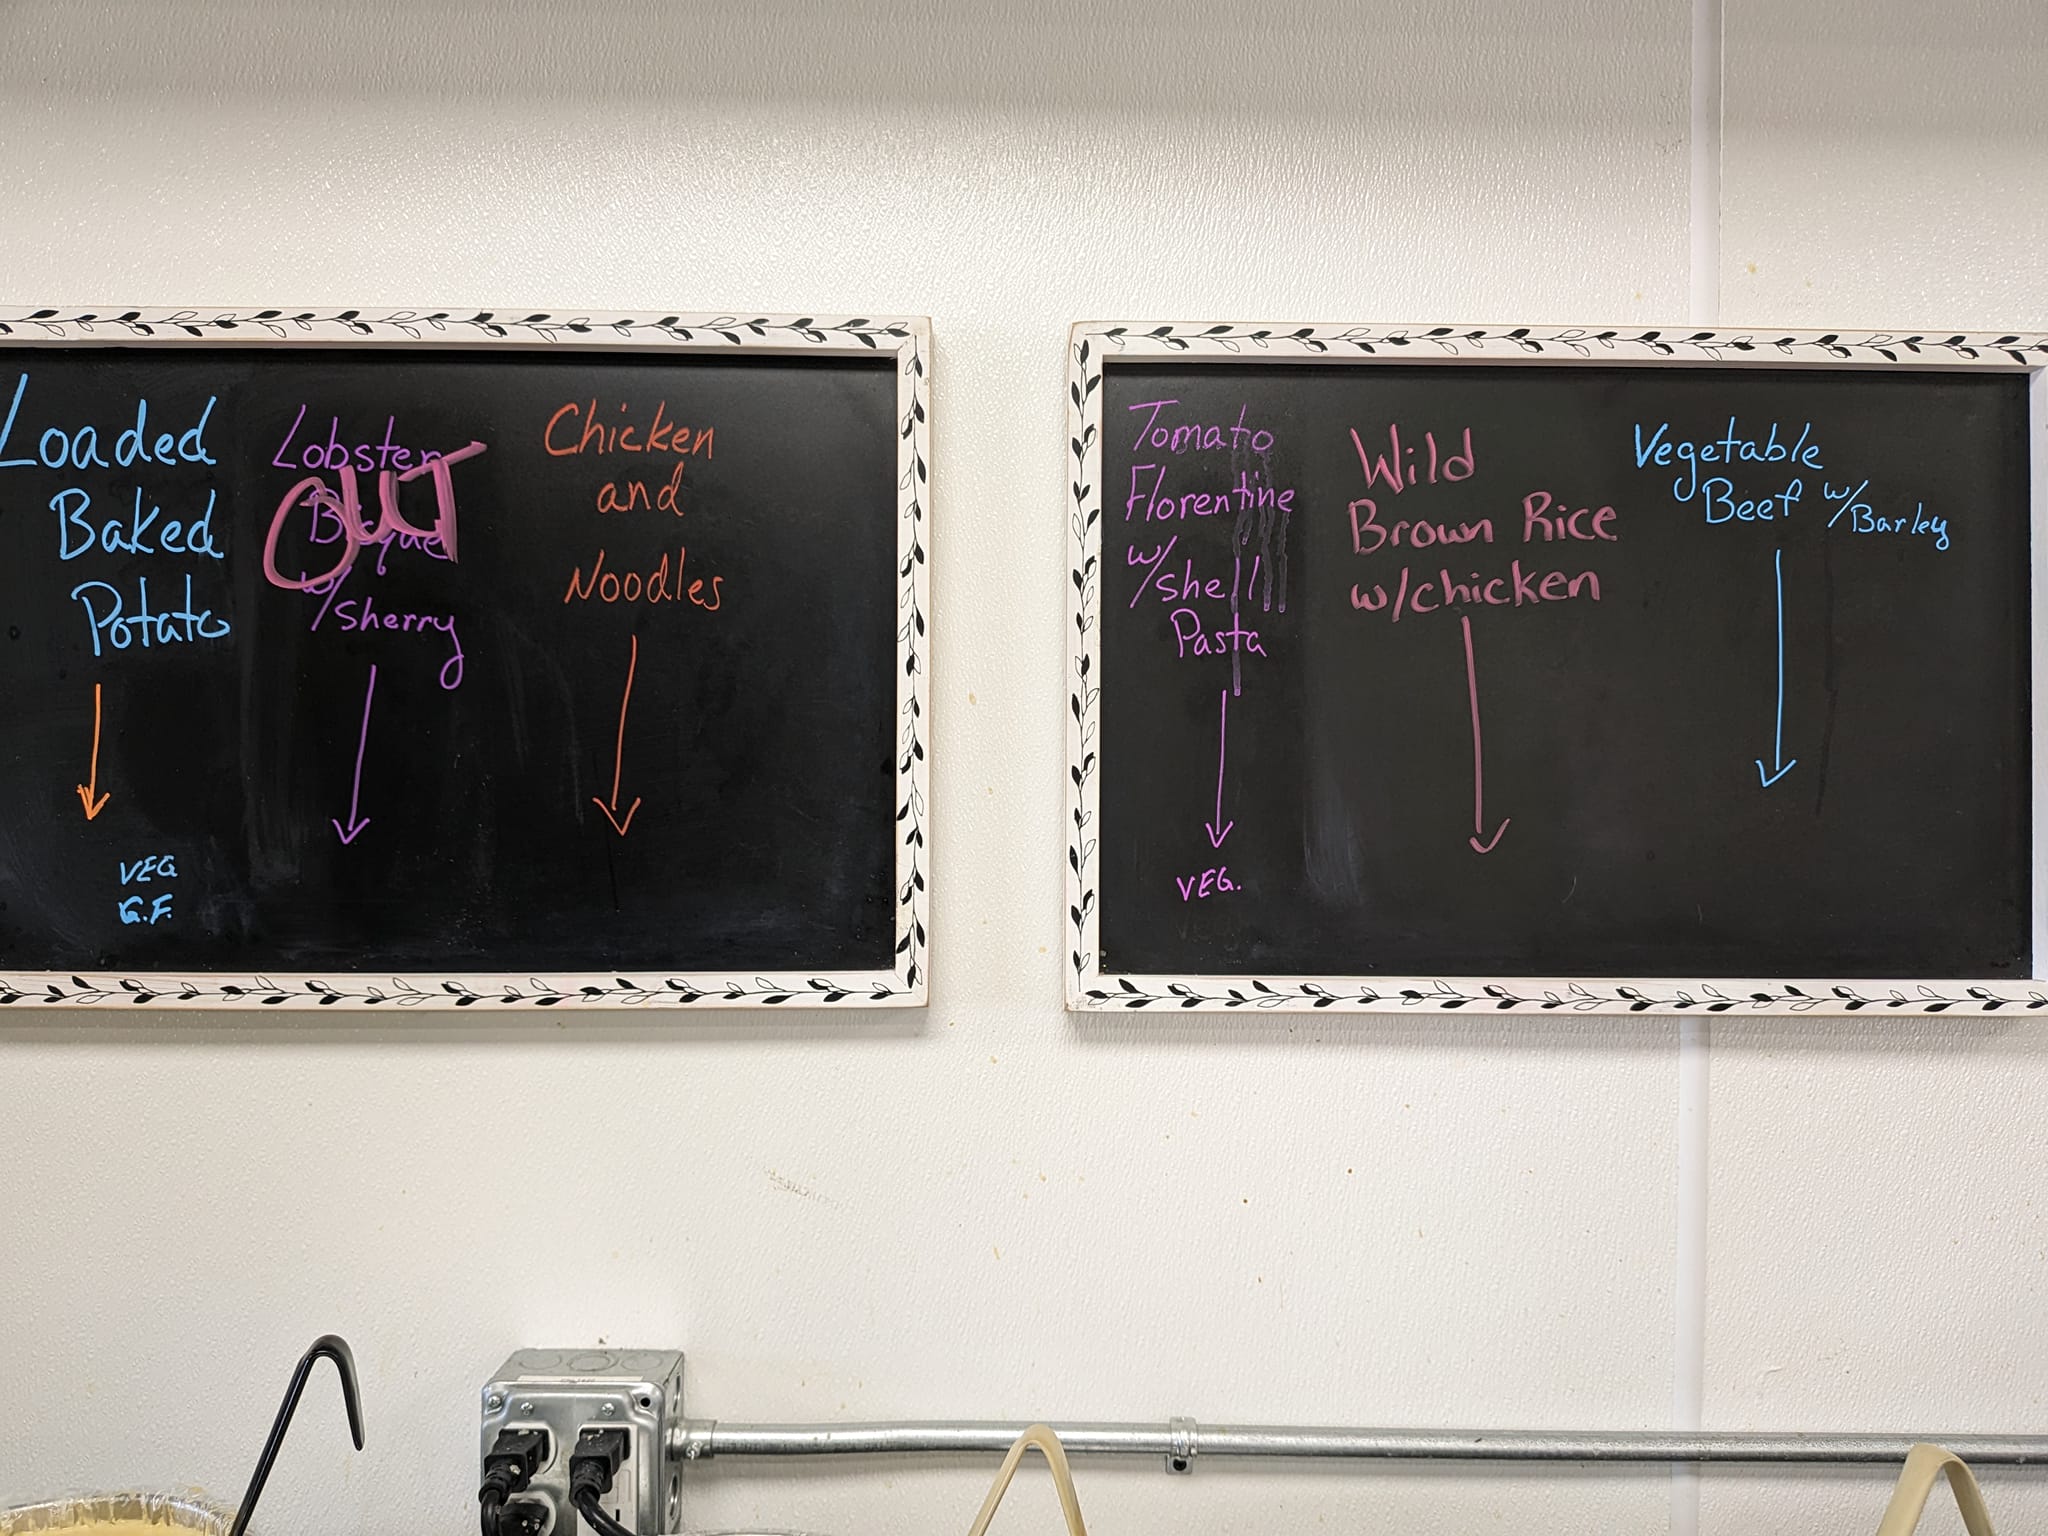 Loaded
Baked
Potato
VEG
G.F.
Lobster
OUT
Bisque
w/Sherry
Chicken
and
Noodles
Tomato
Florentine
w/shell
Pasta
VEG.
Wild
Brown Rice
w/chicken
Vegetable
Beef w/Barley